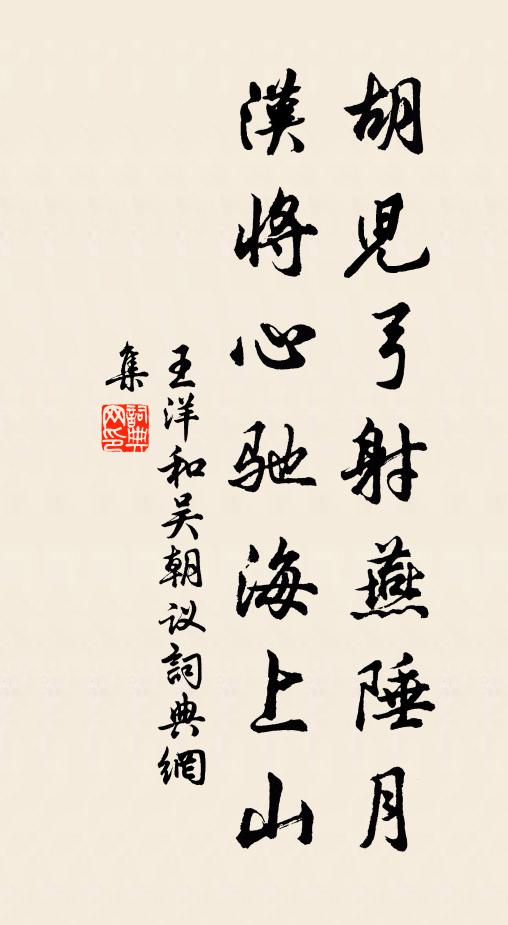 胡児弓射燕陲月
漢將心馳海上山
王洋和吴朝议詞典網
集
詞典
网印